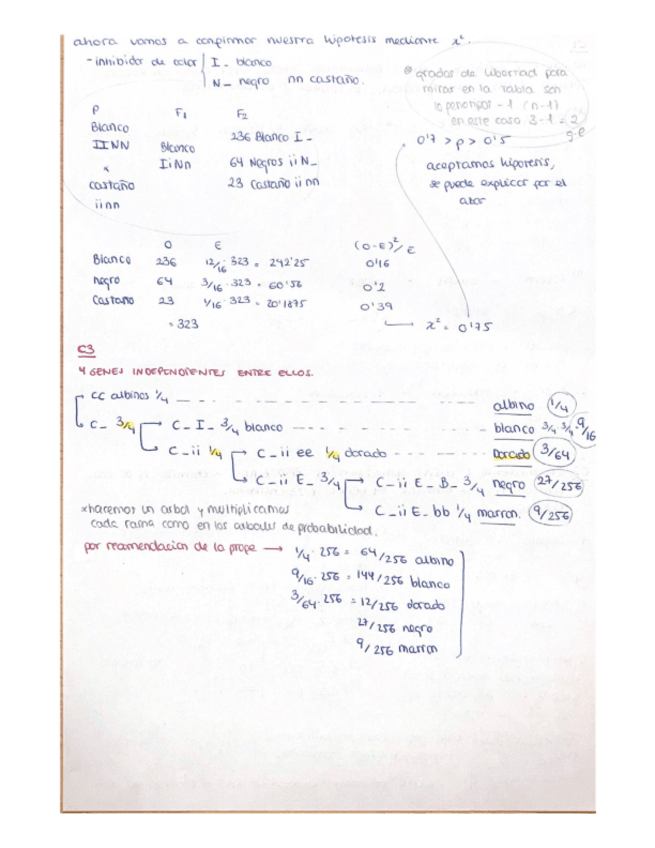 ahora vamos a confirmar nuestra hipotesis mediante x².
- inhibidor de color I - blanco
N - negro nn castaño.
grados de libertad para
mirar en la tabla son
fenotipos - 1 (n-1)
en este caso 3-1 = 2
g.l
0'7 > p > 0'5
aceptamos hipotesis,
se puede explicar por el
azar
P F1 F2
Blanco
IINN
x
castaño
iinn
Blanco
IiNn
236 Blanco I_
64 Negros ii N_
23 Castaño ii nn
O E (O-E)²/E
Blanco 236 12/16 · 323 = 242'25 0'16
negro 64 3/16 · 323 = 60'56 0'2
Castaño 23 1/16 · 323 = 20'1875 0'39
= 323 x² = 0'75
C3
4 GENES INDEPENDIENTES ENTRE ELLOS.
CC albinos 1/4 albino 1/4
C_ 3/4 C_ I_ 3/4 blanco blanco 3/4 · 3/4 = 9/16
C_ ii 1/4 C_ ii ee 1/4 dorado Dorado 3/64
C_ ii E_ 3/4 C_ ii E_ B_ 3/4 negro 27/256
C_ ii E_ bb 1/4 marron. 9/256
*hacemos un arbol y multiplicamos
cada rama como en los arboles de probabilidad.
por recomendacion de la profe → 1/4 · 256 = 64/256 albino
9/16 · 256 = 144/256 blanco
3/64 · 256 = 12/256 dorado
27/256 negro
9/256 marron